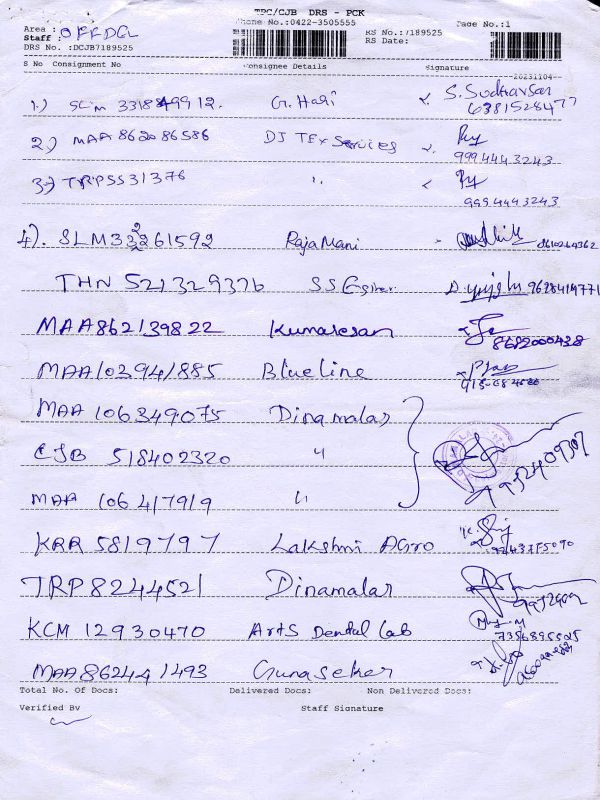 TPC/CJB DRS - PCK
Phone No.:0422-3505555
Page No.:1
Area :
Staff : OFFDGL
DRS No. :DCJB7189525
RS No.:7189525
RS Date:
S No Consignment No Consignee Details Signature
20231104
1.) SLM 331849912. G. Hari S. Sudharsan
6381528477
2.) MAA 862086586 DJ Tex Services
9994443243
3.) TRP5531376 "
9994443243
4). SLM 261592 RajaMani
THN 521329376 SS
MAA862139822 Kumaresan
8682000438
MAA103941885 Blueline
MAA 106349075 Dinamalar
CJB 518402320 "
9952409307
MAA 106417919 "
KRR 5819797 Lakshmi AGro
TRP8244521 Dinamalar
KCM 12930470 Arts Dental Lab
7356895525
MAA862441493 Gunaseker
Total No. Of Docs: Delivered Docs: Non Delivered Docs:
Verified By Staff Signature